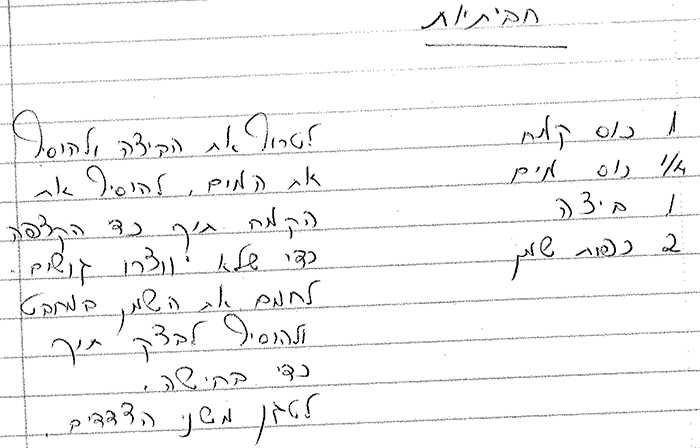 חביתיות
1 כוס קמח
1/4 כוס מים
1 ביצה
2 כפות שמן
לטרוף את הביצה ולהוסיף
את המים. להוסיף את
הקמח תוך כדי הקצפה
כדי שלא יווצרו גושים.
לחמם את השמן במחבט
ולהוסיף לבצק תוך
כדי בחישה.
לטגן משני הצדדים.